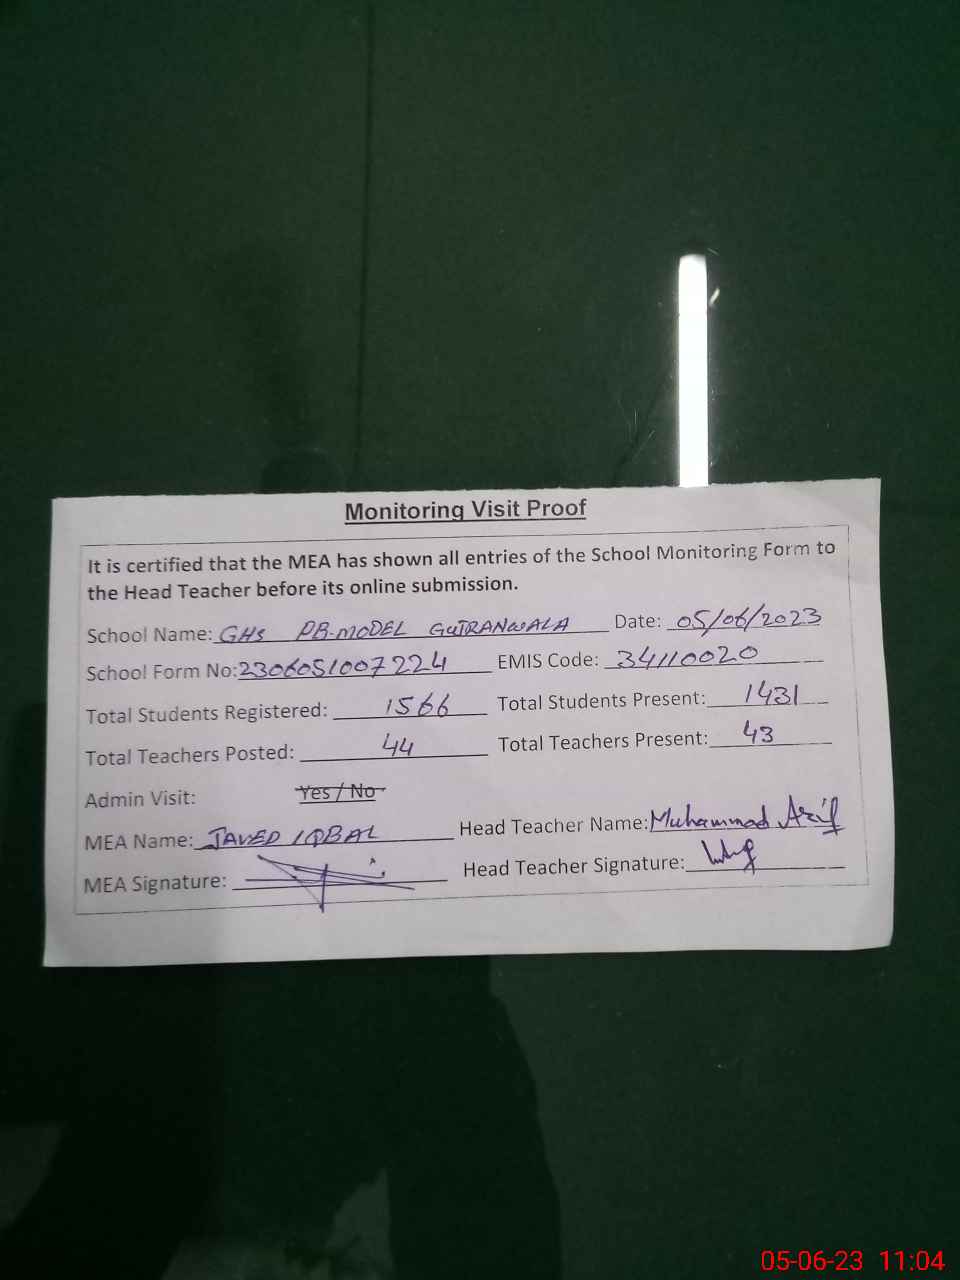 Monitoring Visit Proof
It is certified that the MEA has shown all entries of the School Monitoring Form to
the Head Teacher before its online submission.
School Name: GHS PB-MODEL GUJRANWALA Date: 05/06/2023
School Form No: 2306051007224 EMIS Code: 34110020
Total Students Registered: 1566 Total Students Present: 1431
Total Teachers Posted: 44 Total Teachers Present: 43
Admin Visit: Yes / No
MEA Name: JAVED IQBAL Head Teacher Name: Muhammad Arif
MEA Signature: Head Teacher Signature:
05-06-23 11:04